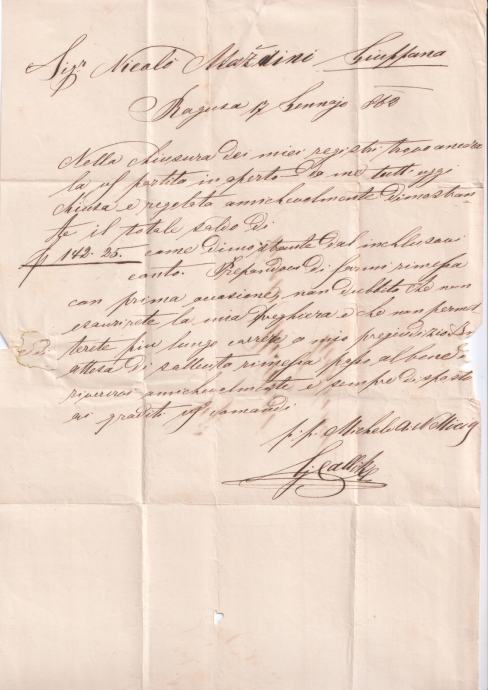 Sigr Nicolò Mažđini Giuppana
Ragusa 17 Gennajo 860
Nella chiusura dei miei registri trovo ancora
la vs partita in aperto da me tutt'oggi
chiusa e regolata amichevolmente dimostran-
te il totale saldo di
f 142.25. come dimostrante dal inchiusovi
conto. Pregandovi di farmi rimessa
con prima occasione, non dubbito che non
esaurirete la mia preghiera e che non permet
terete piu lungo a mio pregiudizio.
attesa di sallecita rimessa passo al bene di
riverirvi amichevolmente e sempre disposto
ai graditi vs comandi
p. p. Michele A.